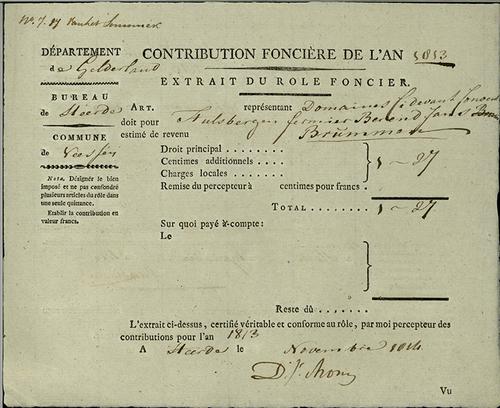 DÉPARTEMENT
de Gelderland
BUREAU
de Heerde
COMMUNE
de Veessen
Nota. Désigner le bien
imposé et ne pas confondre
plusieurs articles du rôle dans
une seule quittance.
Etablir la contribution en
valeur francs.
CONTRIBUTION FONCIÈRE DE L'AN 1813
EXTRAIT DU ROLE FONCIER.
ART. représentant Domaines
doit pour fermier Berend Jan
estimé de revenu Brummen
Droit principal
Centimes additionnels
Charges locales
1 - 27
Remise du percepteur à centimes pour francs.
TOTAL 1 - 27
Sur quoi payé à-compte:
Le
Reste dû
L'extrait ci-dessus, certifié véritable et conforme au rôle, par moi percepteur des
contributions pour l'an 1813
A Heerde le Novembre 1814
Vu